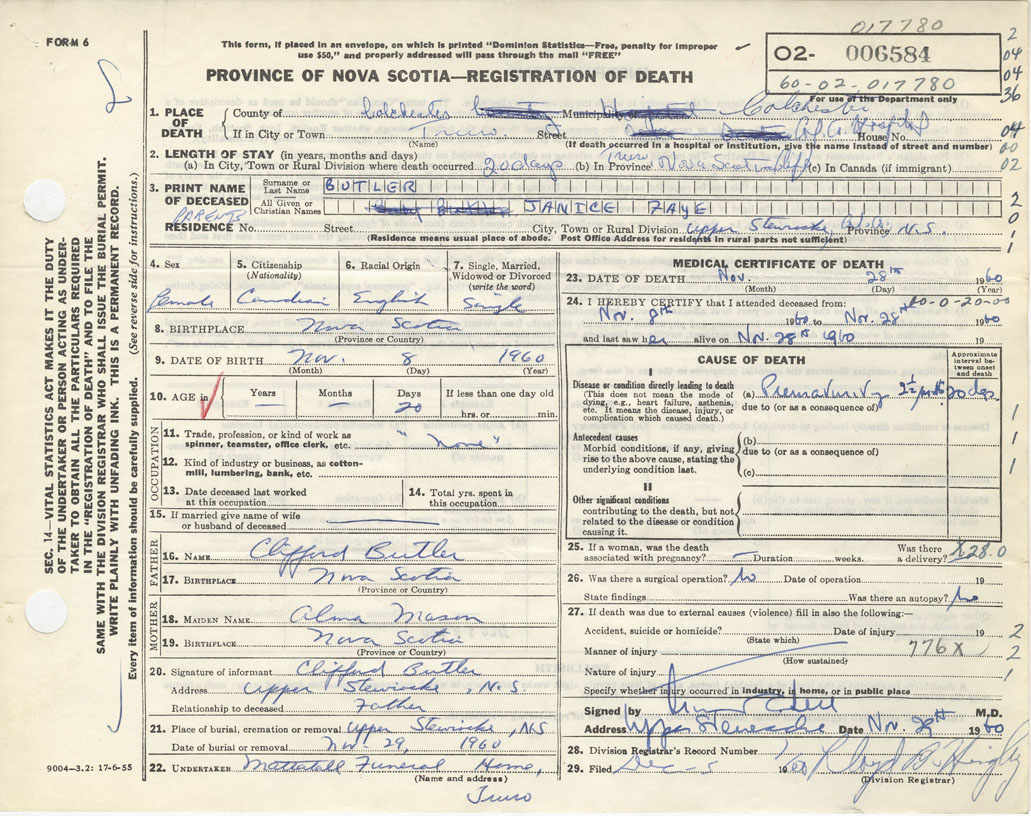 FORM 6
017780
This form, if placed in an envelope, on which is printed "Dominion Statistics—Free, penalty for improper
use $50," and properly addressed will pass through the mail "FREE"
PROVINCE OF NOVA SCOTIA—REGISTRATION OF DEATH
02- 006584
60-02-017780
For use of the Department only
2
04
04
36
04
00
02
2
0
1
1
1. PLACE OF DEATH
County of Colchester Municipality of Colchester
If in City or Town Truro Street Col. Co. Hospital House No.
(Name) (If death occurred in a hospital or institution, give the name instead of street and number)
2. LENGTH OF STAY (in years, months and days) Truro
(a) In City, Town or Rural Division where death occurred 20 days (b) In Province Nova Scotia Life (c) In Canada (if immigrant)
3. PRINT NAME OF DECEASED
Surname or Last Name BUTLER
All Given or Christian Names JANICE FAYE
PARENTS
RESIDENCE No. Street City, Town or Rural Division Upper Stewiacke Col. Co. Province N.S.
(Residence means usual place of abode. Post Office Address for residents in rural parts not sufficient)
4. Sex
Female
5. Citizenship
(Nationality)
Canadian
6. Racial Origin
English
7. Single, Married,
Widowed or Divorced
(write the word)
Single
8. BIRTHPLACE Nova Scotia
(Province or Country)
9. DATE OF BIRTH Nov. 8 1960
(Month) (Day) (Year)
10. AGE in
Years —
Months —
Days 20
If less than one day old
hrs. or min.
OCCUPATION
11. Trade, profession, or kind of work as
spinner, teamster, office clerk, etc. "none"
12. Kind of industry or business, as cotton-
mill, lumbering, bank, etc.
13. Date deceased last worked
at this occupation
14. Total yrs. spent in
this occupation
15. If married give name of wife
or husband of deceased
FATHER
16. NAME Clifford Butler
17. BIRTHPLACE Nova Scotia
(Province or Country)
MOTHER
18. MAIDEN NAME Alma Mason
19. BIRTHPLACE Nova Scotia
(Province or Country)
20. Signature of informant Clifford Butler
Address Upper Stewiacke, N.S.
Relationship to deceased Father
21. Place of burial, cremation or removal Upper Stewiacke, NS
Date of burial or removal Nov-29, 1960
22. UNDERTAKER Mattatall Funeral Home,
(Name and address)
Truro
MEDICAL CERTIFICATE OF DEATH
23. DATE OF DEATH Nov. 28th 1960
(Month) (Day) (Year)
24. I HEREBY CERTIFY that I attended deceased from: 00-0-20-00
Nov. 8th 1960 to Nov. 28th 1960
and last saw her alive on Nov. 28th 1960 19
CAUSE OF DEATH
Approximate
interval be-
tween onset
and death
I
Disease or condition directly leading to death
(This does not mean the mode of
dying, e.g., heart failure, asthenia,
etc. It means the disease, injury, or
complication which caused death.)
(a) Prematurity 2½ mths 20 days
due to (or as a consequence of)
Antecedent causes
Morbid conditions, if any, giving
rise to the above cause, stating the
underlying condition last.
(b)
due to (or as a consequence of)
(c)
II
Other significant conditions
contributing to the death, but not
related to the disease or condition
causing it.
1
1
1
25. If a woman, was the death
associated with pregnancy? — Duration weeks. Was there
a delivery? X28.0
26. Was there a surgical operation? No Date of operation 19
State findings Was there an autopsy? No
27. If death was due to external causes (violence) fill in also the following:—
Accident, suicide or homicide? Date of injury 19
(State which)
Manner of injury 776X
(How sustained)
Nature of injury
Specify whether injury occurred in industry, in home, or in public place
2
2
1
Signed by M.D.
Address Upper Stewiacke Date Nov. 29th 1960
28. Division Registrar's Record Number
29. Filed Dec-5 1960 Lloyd
(Division Registrar)
SEC. 14—VITAL STATISTICS ACT MAKES IT THE DUTY
OF THE UNDERTAKER OR PERSON ACTING AS UNDER-
TAKER TO OBTAIN ALL THE PARTICULARS REQUIRED
IN THE "REGISTRATION OF DEATH" AND TO FILE THE
SAME WITH THE DIVISION REGISTRAR WHO SHALL ISSUE THE BURIAL PERMIT.
WRITE PLAINLY WITH UNFADING INK. THIS IS A PERMANENT RECORD.
Every item of information should be carefully supplied. (See reverse side for instructions.)
9004—3.2: 17-6-55